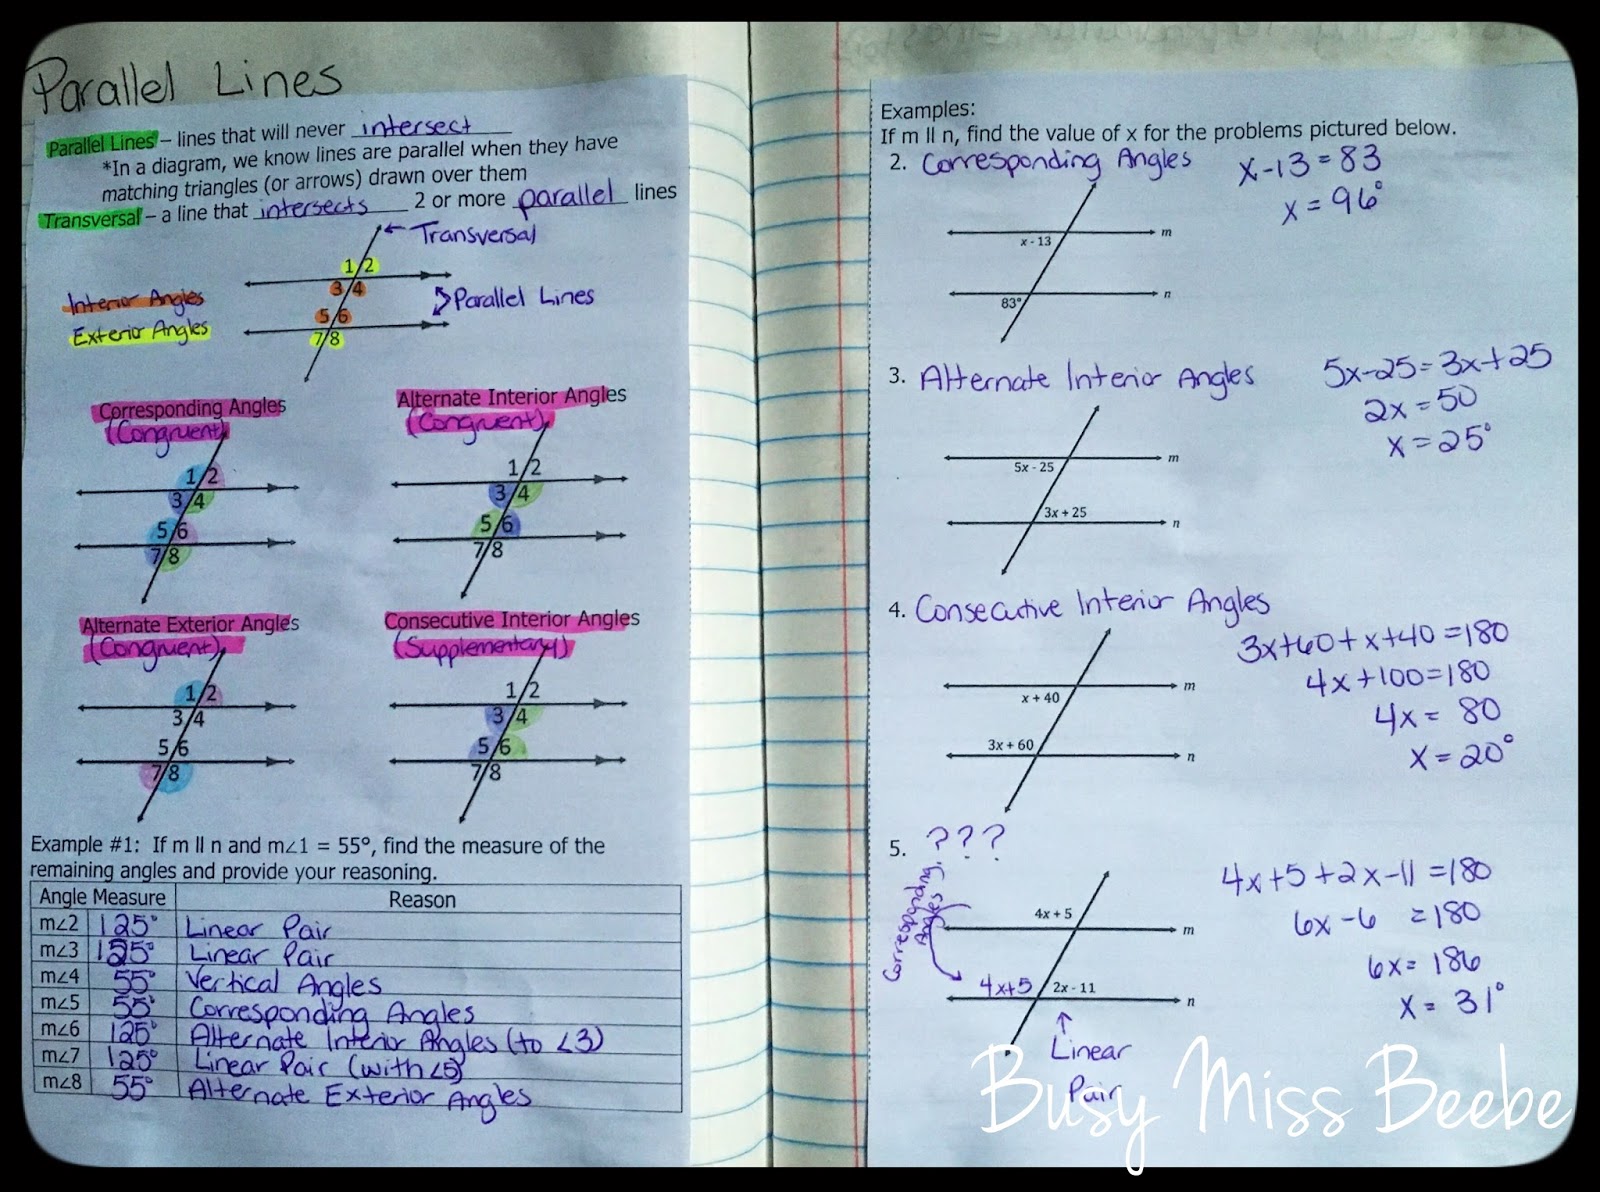 Parallel Lines
Parallel Lines – lines that will never intersect
*In a diagram, we know lines are parallel when they have
matching triangles (or arrows) drawn over them
Transversal – a line that intersects 2 or more parallel lines
← Transversal
1 2
3 4
5 6
7 8
Interior Angles
Exterior Angles
Parallel Lines
Corresponding Angles
(Congruent)
1 2
3 4
5 6
7 8
Alternate Interior Angles
(Congruent)
1 2
3 4
5 6
7 8
Alternate Exterior Angles
(Congruent)
1 2
3 4
5 6
7 8
Consecutive Interior Angles
(Supplementary)
1 2
3 4
5 6
7 8
Example #1: If m ll n and m∠1 = 55°, find the measure of the
remaining angles and provide your reasoning.
Angle Measure Reason
m∠2 125° Linear Pair
m∠3 125° Linear Pair
m∠4 55° Vertical Angles
m∠5 55° Corresponding Angles
m∠6 125° Alternate Interior Angles (to ∠3)
m∠7 125° Linear Pair (with ∠5)
m∠8 55° Alternate Exterior Angles
Examples:
If m ll n, find the value of x for the problems pictured below.
2. Corresponding Angles
x-13=83
x=96°
x - 13
m
83°
n
3. Alternate Interior Angles
5x-25=3x+25
2x=50
x=25°
5x - 25
m
3x + 25
n
4. Consecutive Interior Angles
3x+60+x+40=180
4x+100=180
4x= 80
x=20°
x + 40
m
3x + 60
n
5. ???
Corresponding
Angles
4x+5+2x-11=180
6x-6 =180
6x=186
x= 31°
4x + 5
m
4x+5 2x - 11
n
↑
Linear
Pair
Busy Miss Beebe